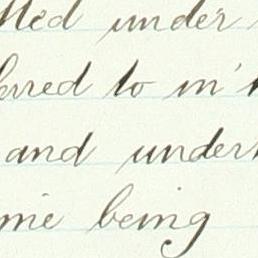 tted under
erred to in
and under
me being